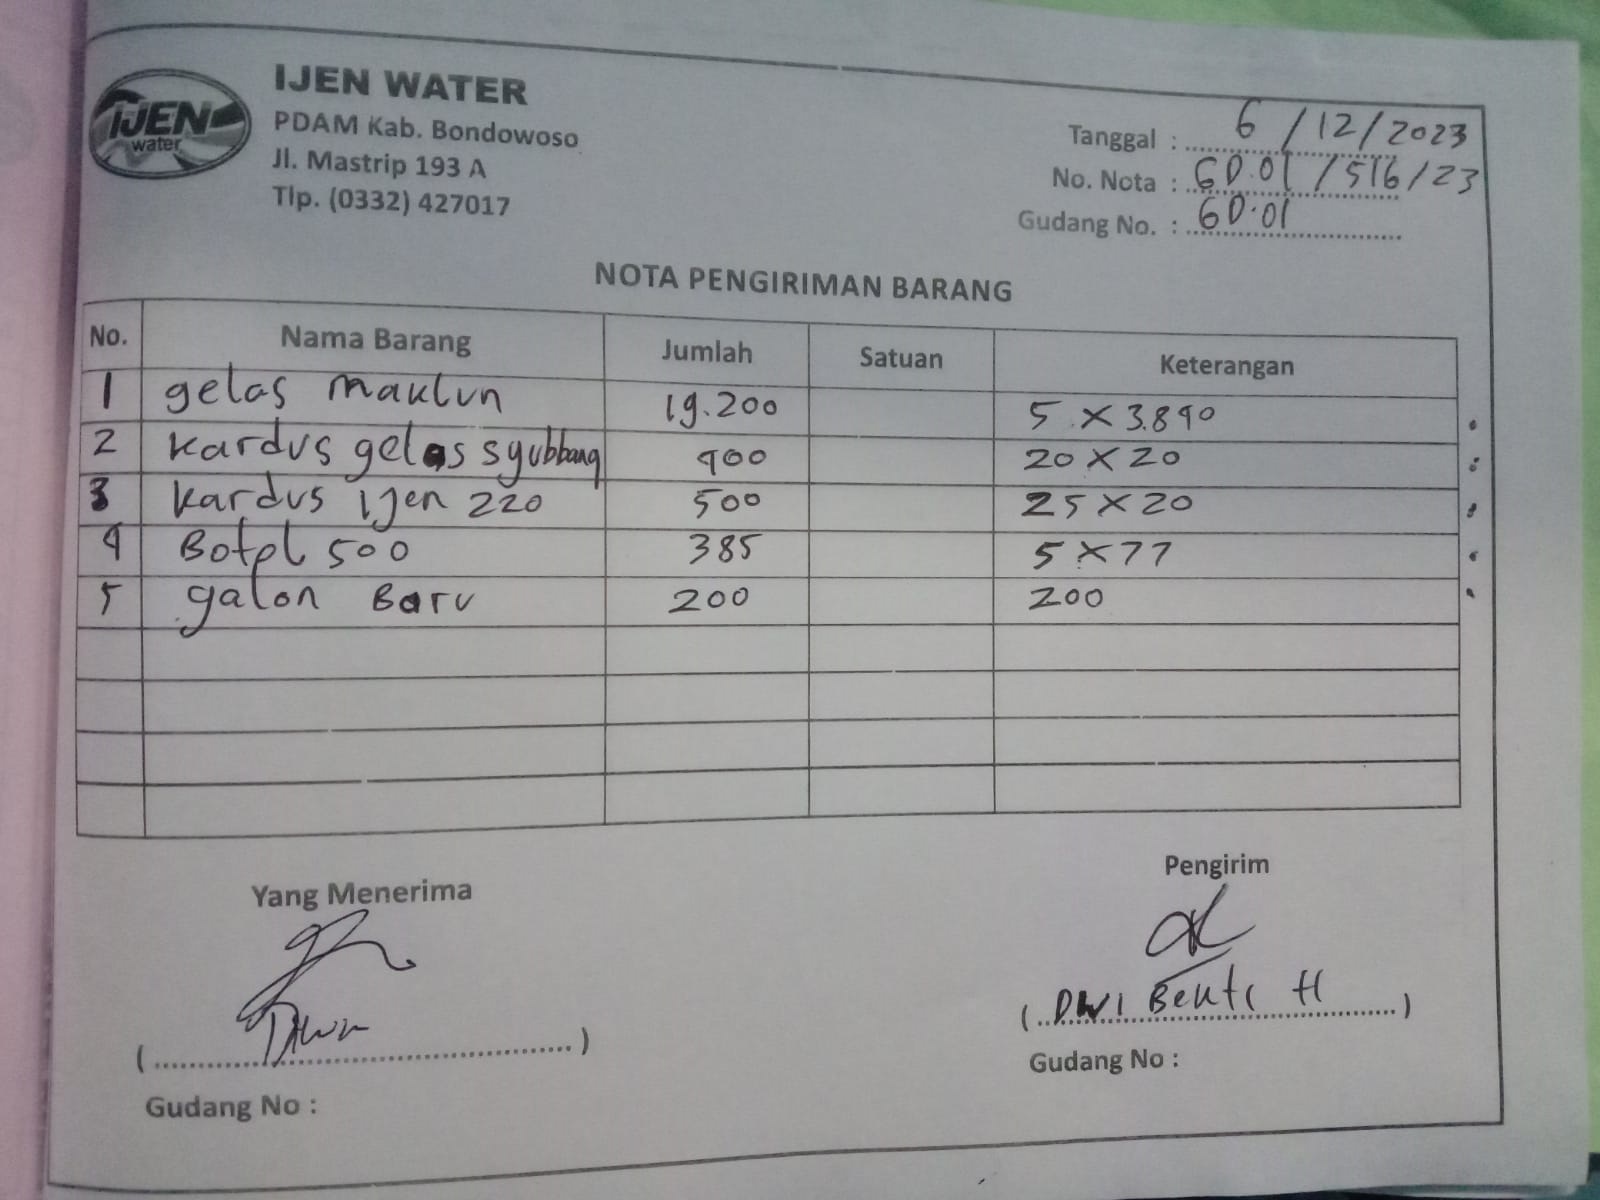 IJEN water
IJEN WATER
PDAM Kab. Bondowoso
Jl. Mastrip 193 A
Tlp. (0332) 427017
Tanggal : 6 / 12 / 2023
No. Nota : GD.01 / 516 / 23
Gudang No. : GD.01
NOTA PENGIRIMAN BARANG
No. Nama Barang Jumlah Satuan Keterangan
1 gelas maklun 19.200 5 X 3.840
2 Kardus gelas syubbang 400 20 X 20
3 Kardus Ijen 220 500 25 X 20
4 Botol 500 385 5 X 77
5 galon Baru 200 200
Yang Menerima Pengirim
( DWI H )
Gudang No : Gudang No :